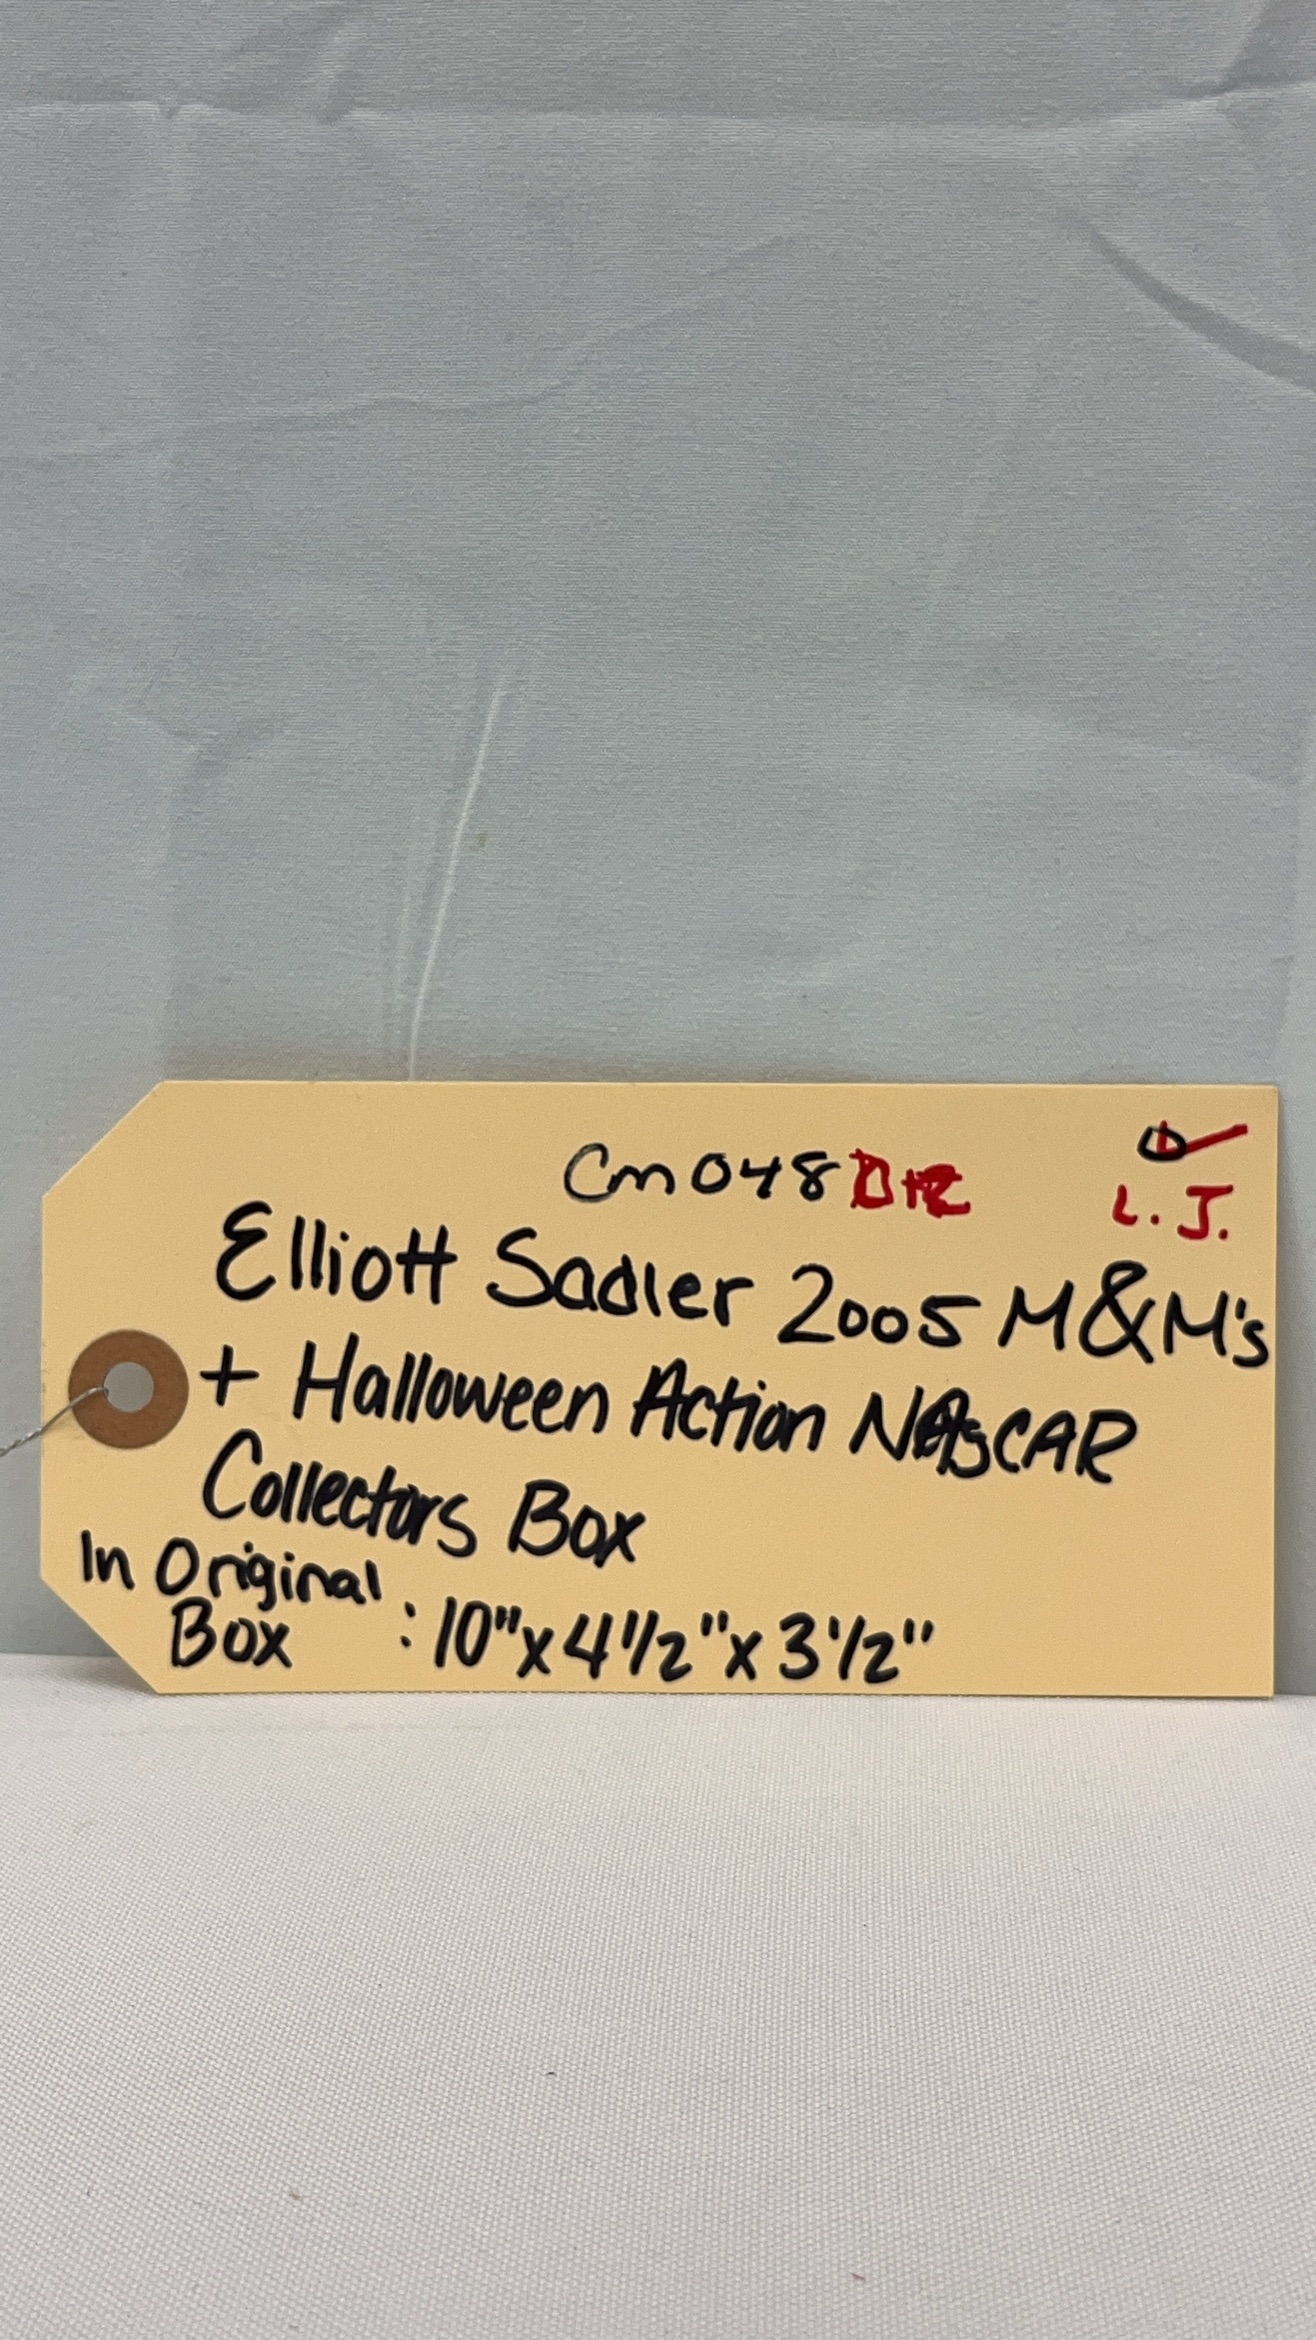 Cm048
L.J.
Elliott Sadler 2005 M&M's
+ Halloween Action NASCAR
Collectors Box
In Original
Box : 10"x4 1/2"x3 1/2"